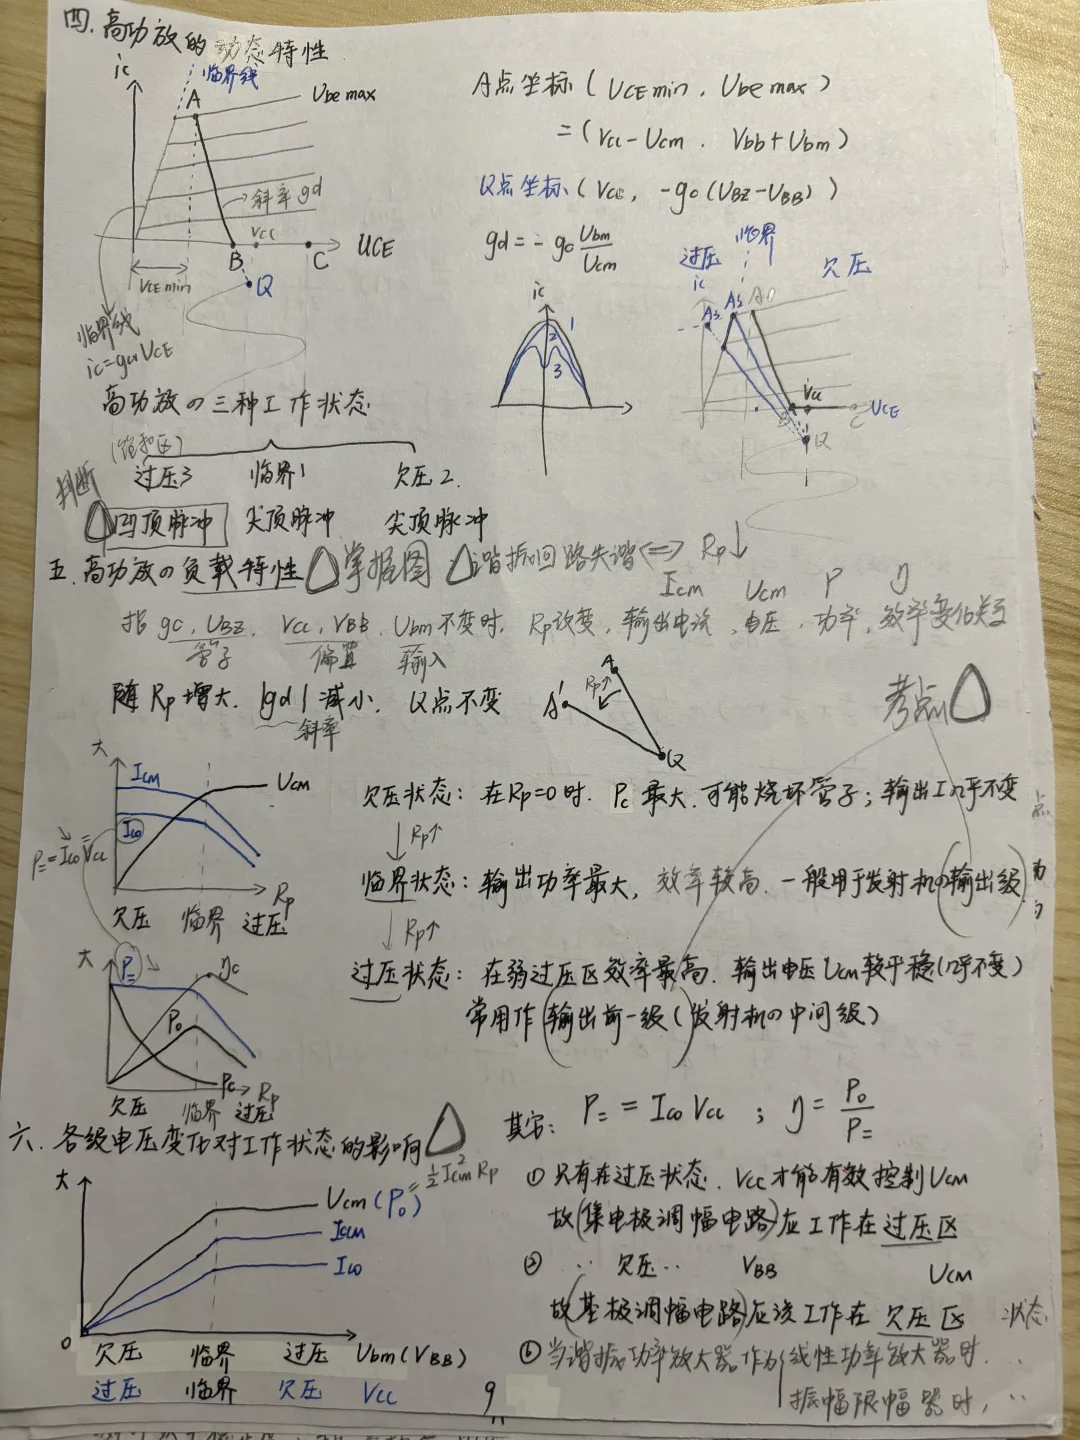 四. 高功放的动态特性
ic
临界线
A
Ube max
斜率 gd
Vcc
UCE
B
C
VCE min
Q
临界线
ic=gcr VCE
A点坐标 ( UCE min . Ube max )
= ( Vcc - Ucm . Vbb + Ubm )
Q点坐标 ( Vcc , -gc (UBZ - UBB) )
gd = - gc Ubm/Ucm
ic
1
2
3
过压
临界
欠压
ic
A3
A2
A1
Vcc
UCE
B
C
Q
高功放の三种工作状态
(饱和区)
过压3 临界1 欠压2.
判断
凹顶脉冲 尖顶脉冲 尖顶脉冲
五. 高功放の负载特性 掌握图 谐振回路失谐 <=> Rp↓
Icm Ucm P η
指 gc, UBZ, Vcc, VBB, Ubm不变时, Rp改变, 输出电流, 电压, 功率, 效率变化关系
管子 偏置 输入
随 Rp 增大. |gd| 减小. Q点不变
斜率
A
Rp↑
A'
Q
考点
大
Icm
Ucm
Ico
P= = Ico Vcc
Rp
欠压 临界 过压
欠压状态: 在Rp=0时. Pc 最大. 可能烧坏管子; 输出I几乎不变
Rp↑
临界状态: 输出功率最大, 效率较高. 一般用于发射机の(输出级)
Rp↑
过压状态: 在弱过压区效率最高. 输出电压Ucm较平稳(几乎不变)
常用作(输出前一级)(发射机の中间级)
大
P=
ηc
Po
Pc
Rp
欠压 临界 过压
六. 各级电压变化对工作状态的影响
其实: P= = Ico Vcc ; η = Po/P=
大
Ucm (Po) = ½ Icm² Rp
Icm
Ico
0
欠压 临界 过压 Ubm (VBB)
过压 临界 欠压 Vcc
① 只有在过压状态. Vcc才能有效控制Ucm
故(集电极调幅电路)应工作在过压区
② ‥ 欠压‥ VBB Ucm
故(基极调幅电路)应该工作在 欠压区 状态
⑥ 当谐振功率放大器作为线性功率放大器时. ‥
振幅限幅器时, ‥
9